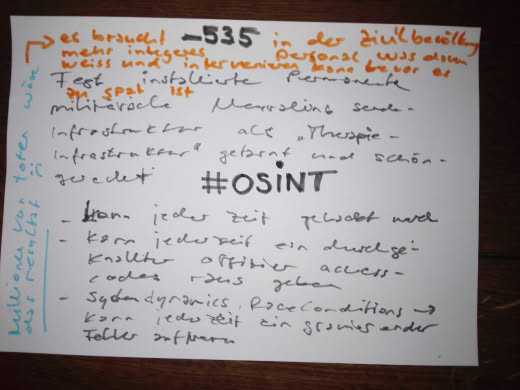 es braucht -535 in der Zivilbevölkung
mehr integeres Personal was davon
weiss und intervenieren kann bevor es
zu spät ist
Fest installierte Permanente
militärische sende-
infrastruktur als "Therapie-
infrastruktur" getarnt und schön-
geredet
#OSINT
- kann jeder Zeit gehackt werden
- kann jederzeit ein durchge-
knallter offizier access-
codes raus geben
- Systemdynamics, RaceConditions →
kann jederzeit ein gravierender
Fehler auftreten
Millionen von Toten wäre
das resultat